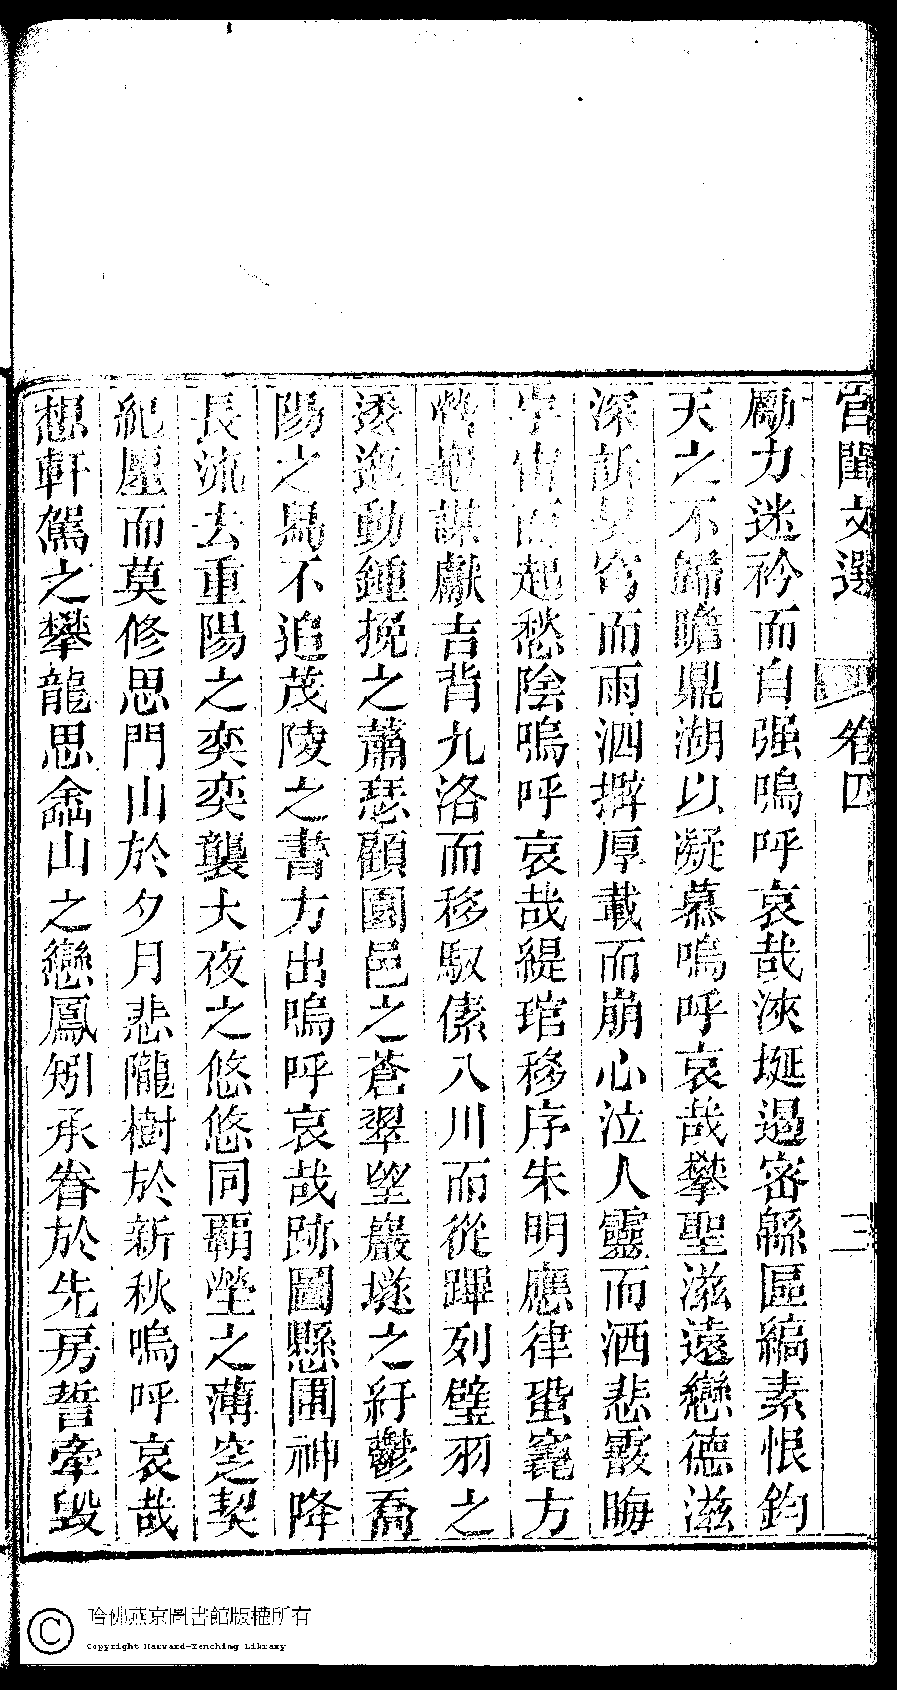 宮閨文選 卷四 二
勵力迷衿而自强嗚呼哀哉浹埏遏密緜區縞素恨鈞
天之不歸瞻鼎湖以凝慕嗚呼哀哉攀聖滋遠戀德滋
深訴旻穹而雨泗擗厚載而崩心泣人靈而洒悲霰晦
宇宙而起愁陰嗚呼哀哉緹琯移序朱明應律蛩竁方
龜謀獻吉背九洛而移馭傃八川而從蹕列璧羽之
逶迤動鍾挽之蕭瑟顧園邑之蒼翠望巖墱之紆鬱喬
陽之舄不追茂陵之書方出嗚呼哀哉跡圖懸圃神降
長流去重陽之奕奕襲大夜之悠悠同霸塋之薄窆契
紀壥而莫修思門山於夕月悲隴樹於新秋嗚呼哀哉
想軒駕之攀龍思嵞山之戀鳳矧承眷於先房誓牽毀
哈佛燕京圖書館版權所有
Copyright Harvard-Yenching Library